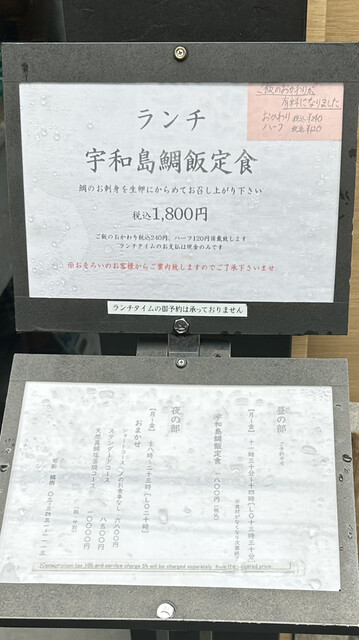 ご飯のおかわりが
有料になりました
おかわり 税込¥240
ハーフ 税込¥120
ランチ
宇和島鯛飯定食
鯛のお刺身を生卵にからめてお召し上がり下さい
税込1,800円
ご飯のおかわり税込240円、ハーフ120円頂戴致します
ランチタイムのお支払は現金のみです
※おそろいのお客様からご案内致しますのでご了承下さいませ
ランチタイムの御予約は承っておりません
昼の部
【月~金】 十一時三十分~十四時(LO十三時三十分)
宇和島鯛飯定食 一八〇〇円(税込)
夜の部
【月~金】 十八時~二十三時(LO二十時)
おまかせ
スタンダードコース 八五〇〇円
一〇〇〇〇円
(税・サ別)
(Consumption tax 10% and service charge 5% will be charged separately from the indicated price.